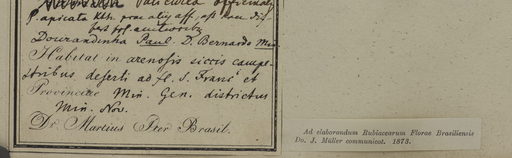 officinalis
β. apicata Kth. prae aliis aff., est
Douradinha Paul. D. Bernardo Min.
Habitat in arenosis siccis campe-
stribus deserti ad fl. S. Franc. et
Provinciae Min. Gen. districtus
Min. Nov.
Dr. Martius Iter Brasil.
Ad elaborandum Rubiacearum Florae Brasiliensis
Do. J. Müller communicot. 1873.